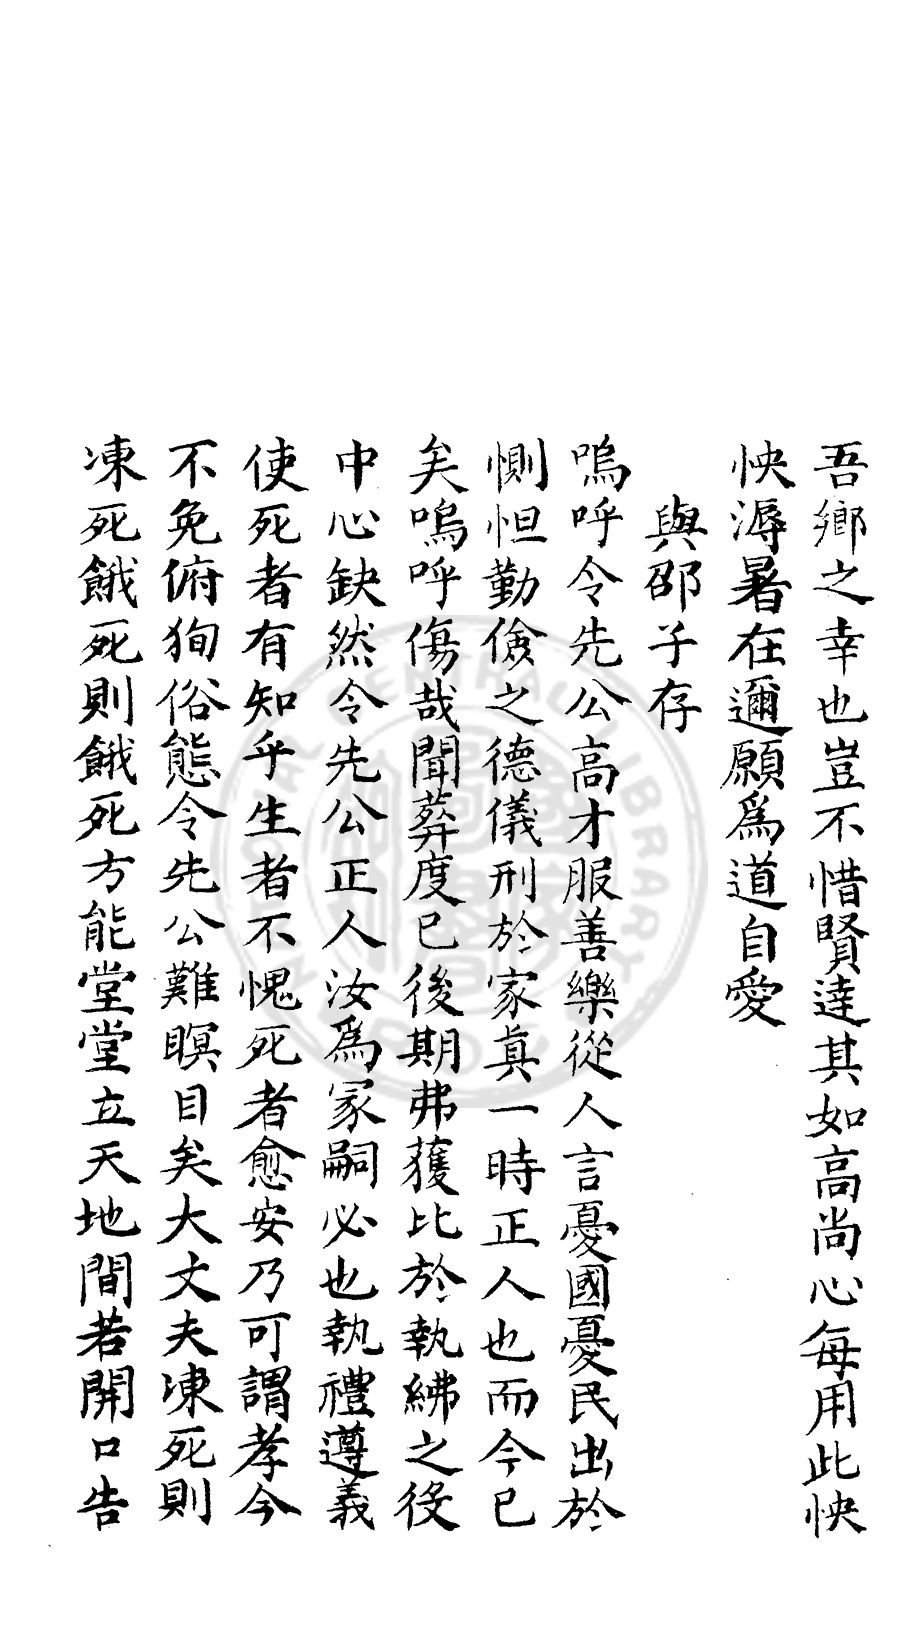 吾鄉之幸也豈不惜賢達其如高尚心每用此怏
怏溽暑在邇願爲道自愛
與邵子存
嗚呼令先公高才服善樂從人言憂國憂民出於
惻怛勤儉之德儀刑於家眞一時正人也而今已
矣嗚呼傷哉聞葬度已後期弗獲比於執紼之役
中心缺然令先公正人汝爲冢嗣必也執禮遵義
使死者有知乎生者不愧死者愈安乃可謂孝今
不免俯狥俗態令先公難瞑目矣大丈夫凍死則
凍死餓死則餓死方能堂堂立天地間若開口告
NATIONAL CENTRAL LIBRARY